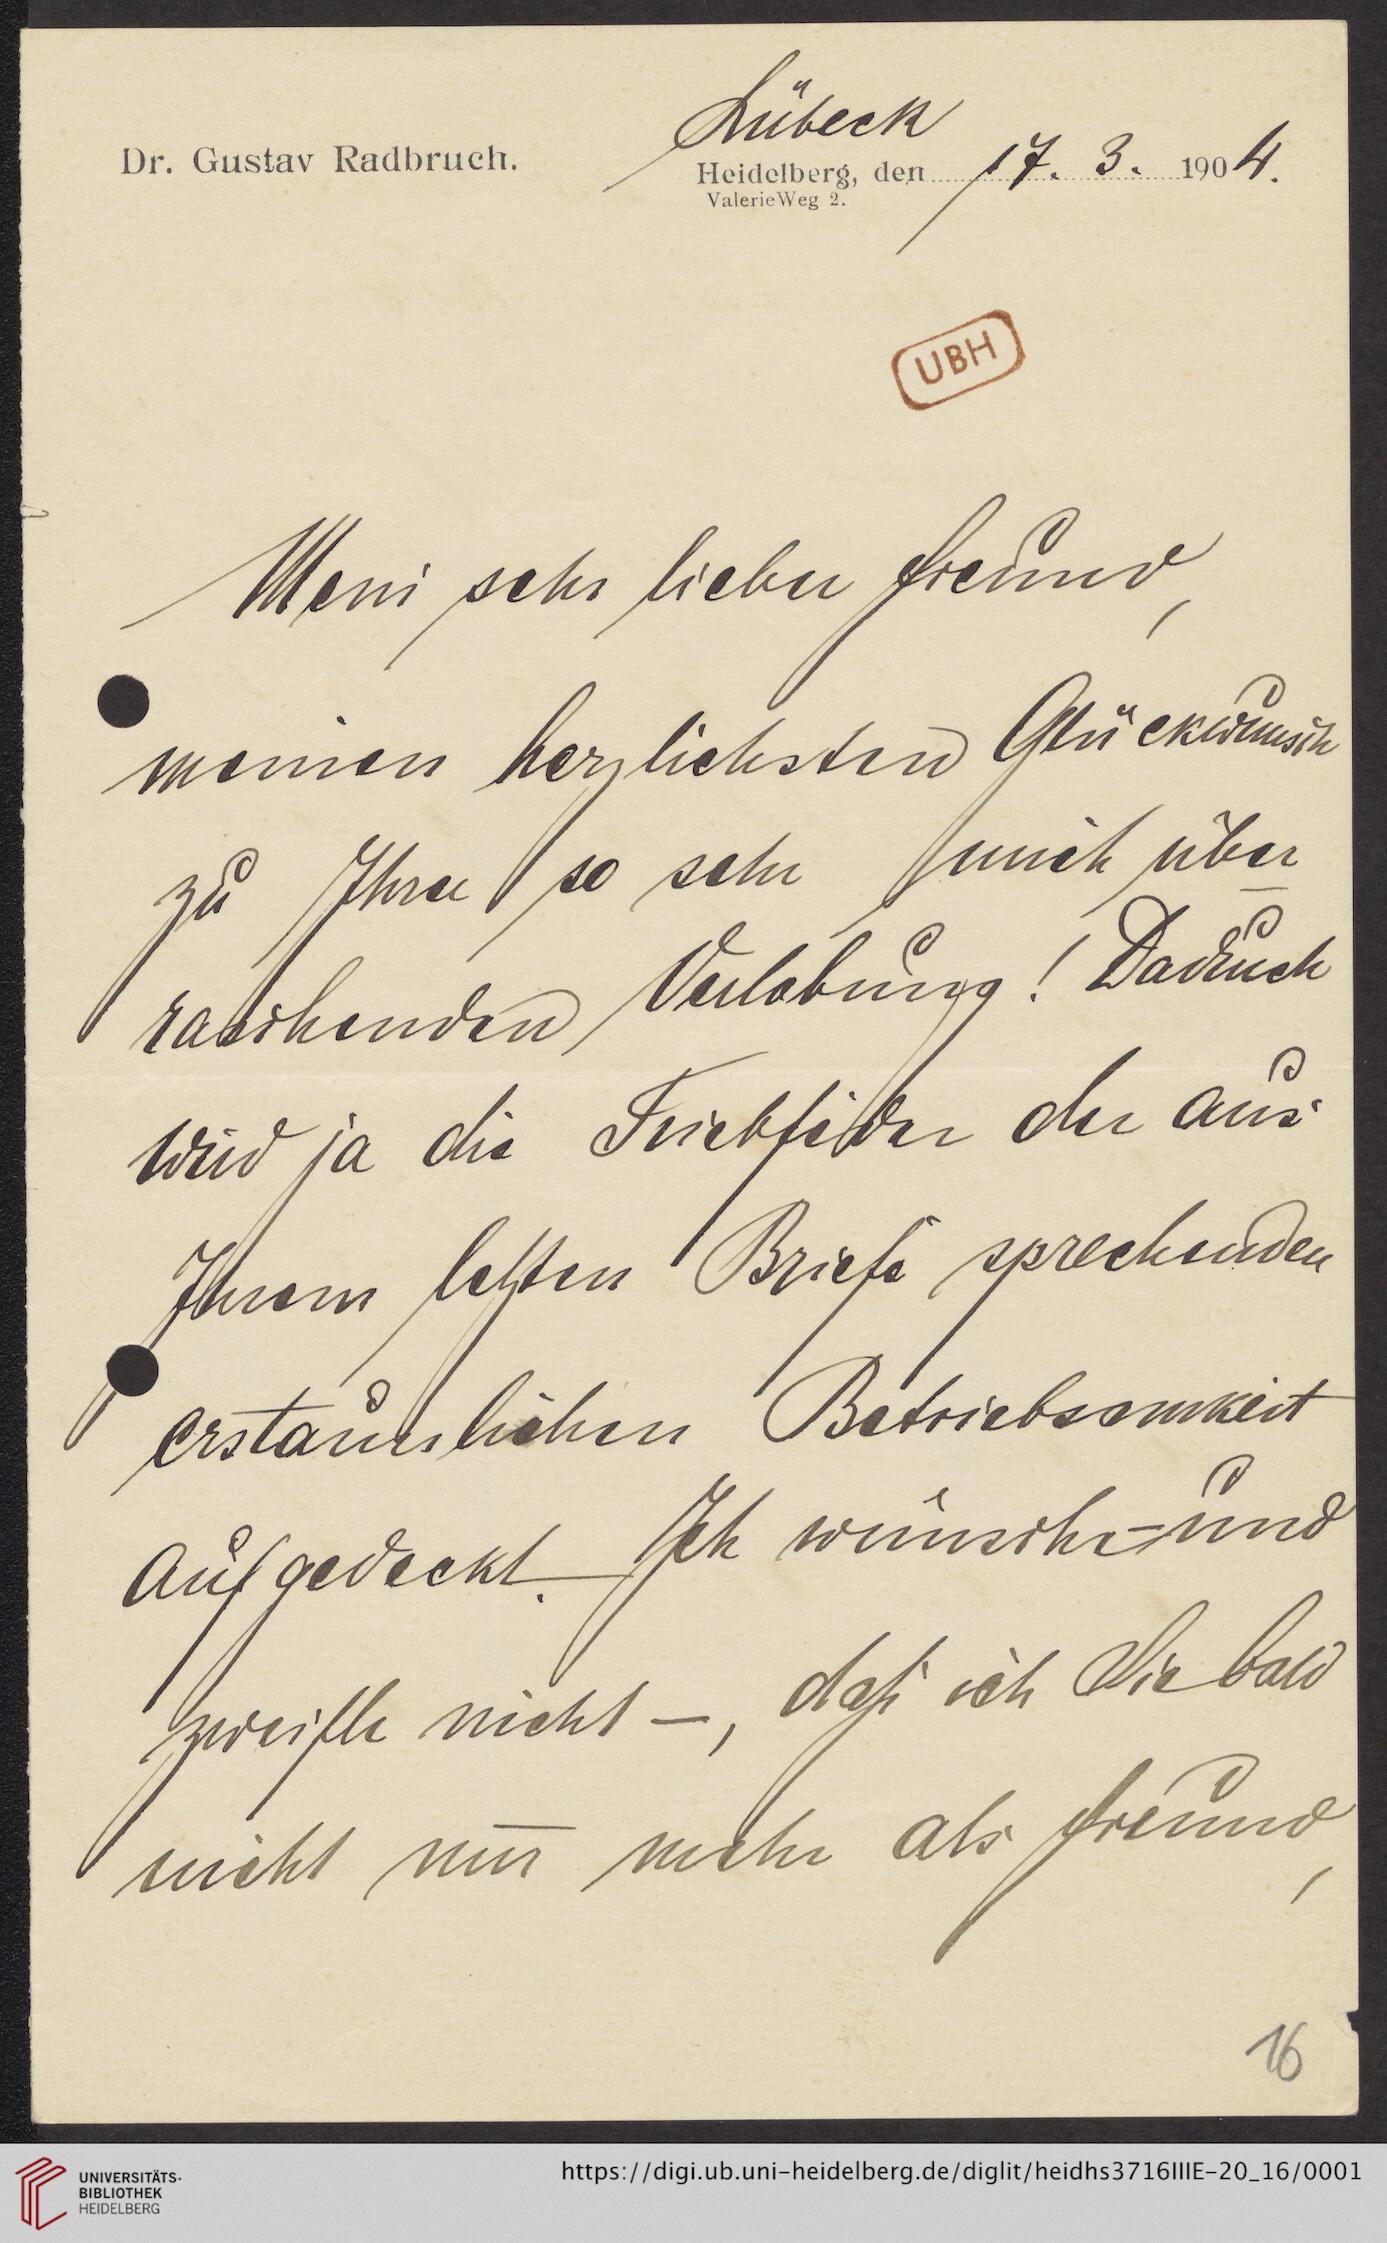 Lübeck
Dr. Gustav Radbruch.
Heidelberg, den 17. 3. 1904.
ValerieWeg 2.
UBH
Mein sehr lieber Freund,
meinen herzlichsten Glückwunsch
zu Ihrer so sehr mich über
raschenden Verlobung! Dadurch
wird ja die Triebfeder der aus
Ihrem letzten Briefe sprechenden
erstaunlichen Betriebsamkeit
aufgedeckt. – Ich wünsche – und
zweifle nicht –, daß ich Sie bald
nicht nur mehr als Freund,
16
UNIVERSITÄTS-
BIBLIOTHEK
HEIDELBERG
https://digi.ub.uni-heidelberg.de/diglit/heidhs3716IIIE-20_16/0001